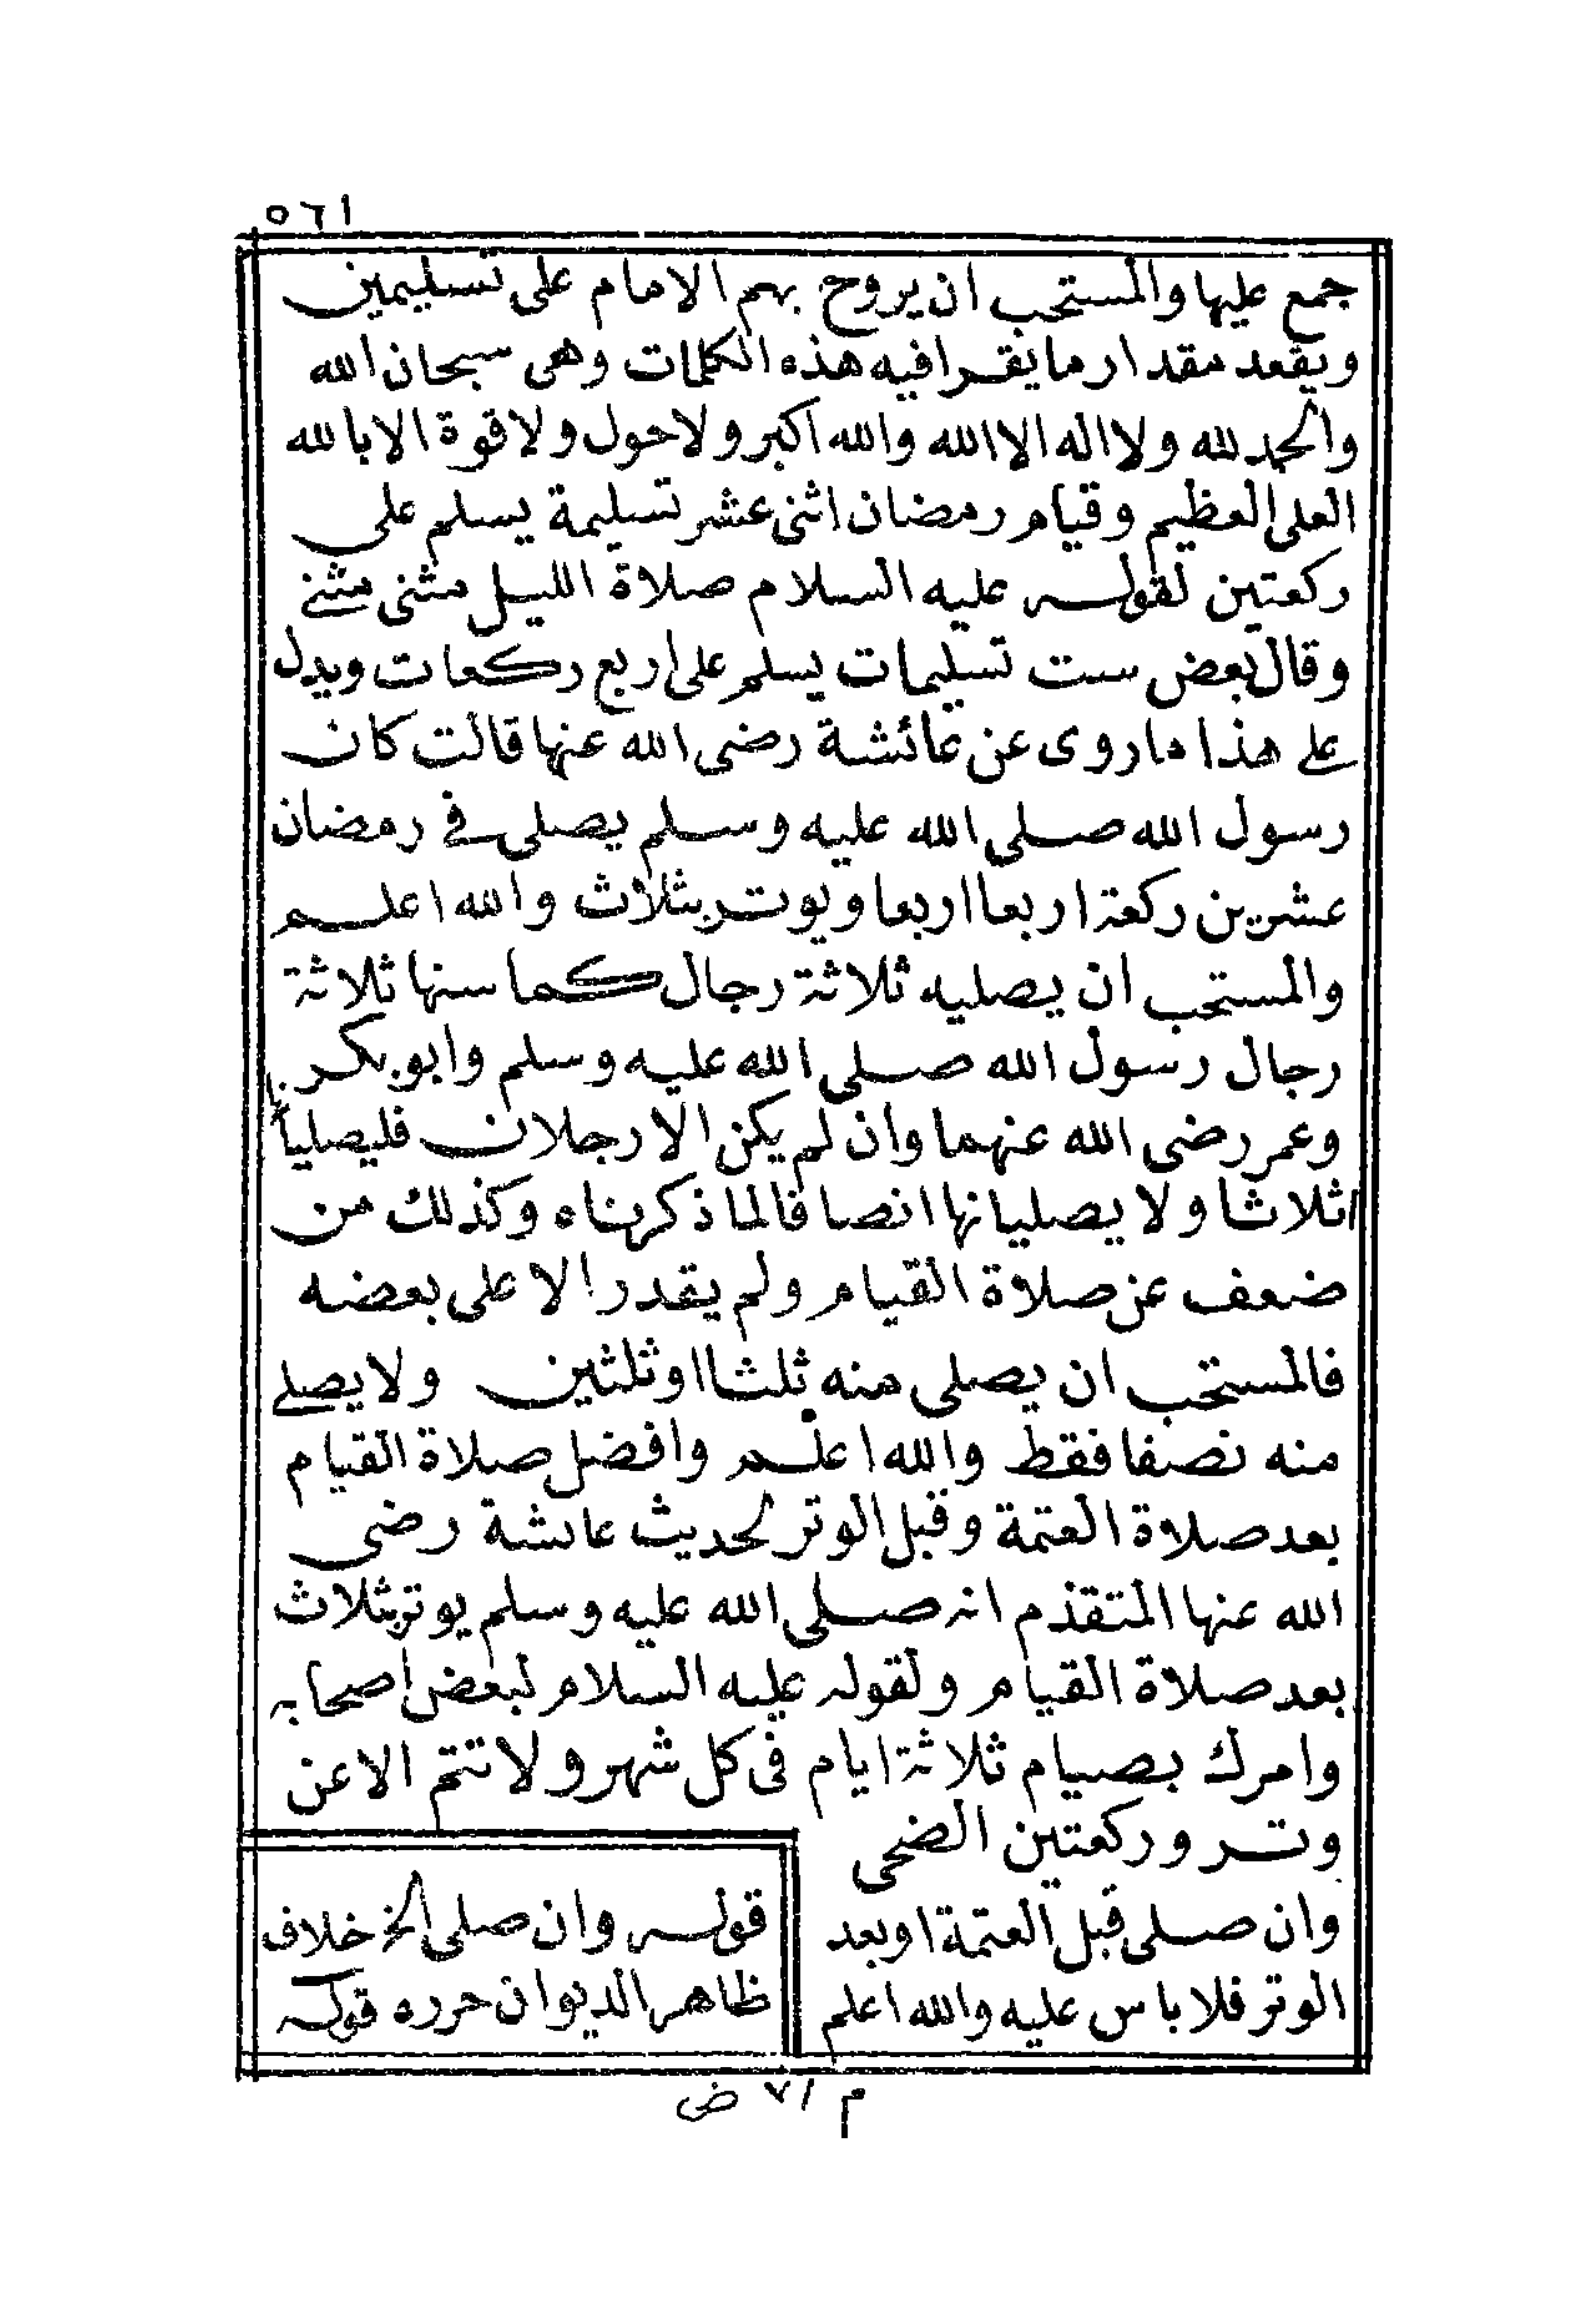 ٥٦١
جمع عليها والمستحب ان يروح بهم الامام على تسليمين
ويقعد مقدار ما يقرا فيه هذه الكلمات وهى سبحان الله
والحمد لله ولا اله الا الله والله اكبر ولا حول ولا قوة الا بالله
العلى العظيم وقيام رمضان اثنى عشر تسليمة يسلم على
ركعتين لقوله عليه السلام صلاة الليل مثنى مثنى
وقال بعض ست تسليمات يسلم على اربع ركعات ويدل
على هذا ما روى عن عائشة رضى الله عنها قالت كان
رسول الله صلى الله عليه وسلم يصلى فى رمضان
عشرين ركعة اربعا اربعا ويوتر بثلاث والله اعلم
والمستحب ان يصليه ثلاثة رجال كما سنها ثلاثة
رجال رسول الله صلى الله عليه وسلم وابو بكر
وعمر رضى الله عنهما وان لم يكن الا رجلان فليصلياها
اثلاثا ولا يصليانها انصافا لما ذكرناه وكذلك من
ضعف عن صلاة القيام ولم يقدر الا على بعضه
فالمستحب ان يصلى منه ثلثا او ثلثين ولا يصلى
منه نصفا فقط والله اعلم وافضل صلاة القيام
بعد صلاة العتمة وقبل الوتر لحديث عائشة رضى
الله عنها المتقدم انه صلى الله عليه وسلم يوتر بثلاث
بعد صلاة القيام ولقوله عليه السلام لبعض اصحابه
وامرك بصيام ثلاثة ايام فى كل شهر ولا تتم الا عن
وتر وركعتين الضحى
وان صلى قبل العتمة او بعد
الوتر فلا باس عليه والله اعلم
قوله وان صلى الخ خلاف
ظاهر الديوان حرره قوله
م /٧١ ض